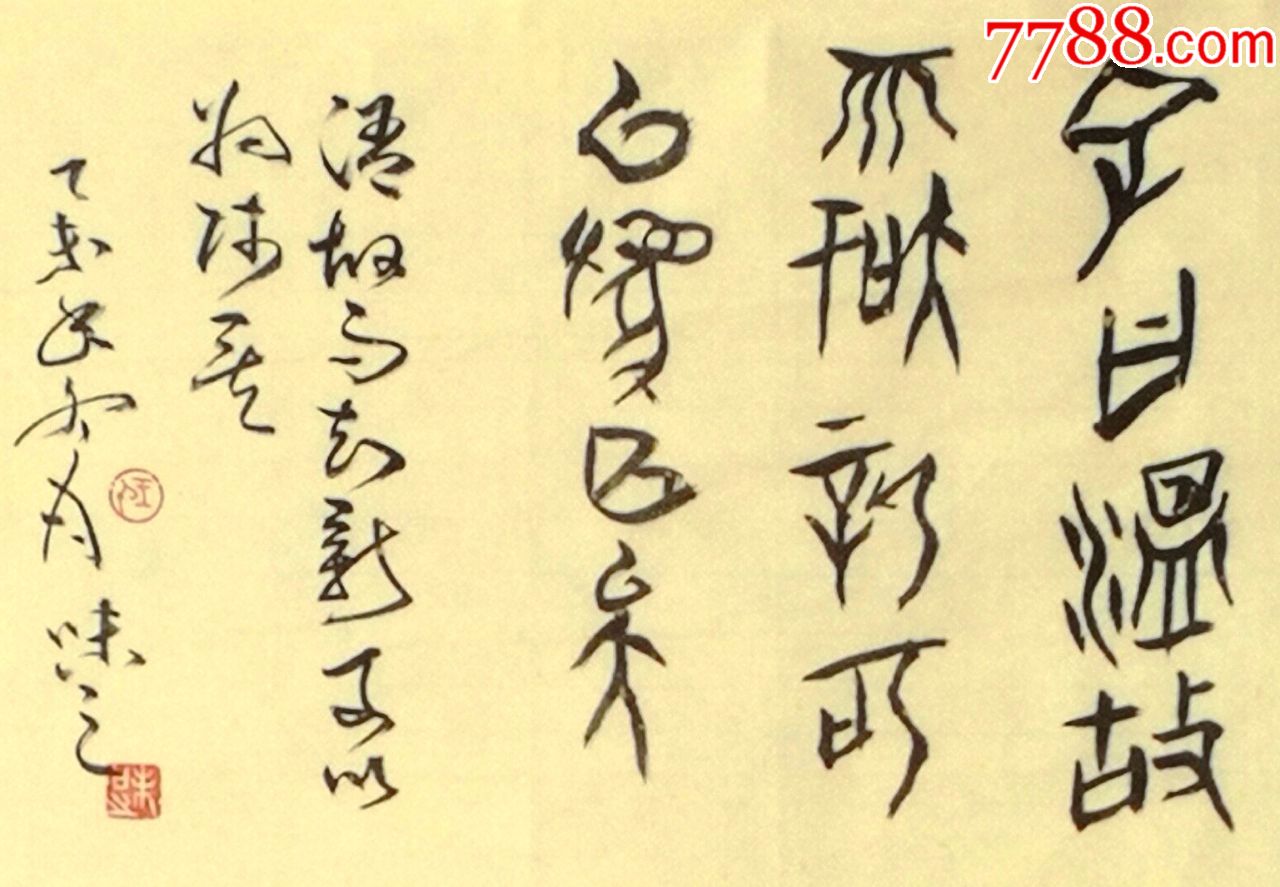 子曰温故
而知新可
以为师矣
温故而知新可以
为师矣
乙未年冬月 味之
7788.com